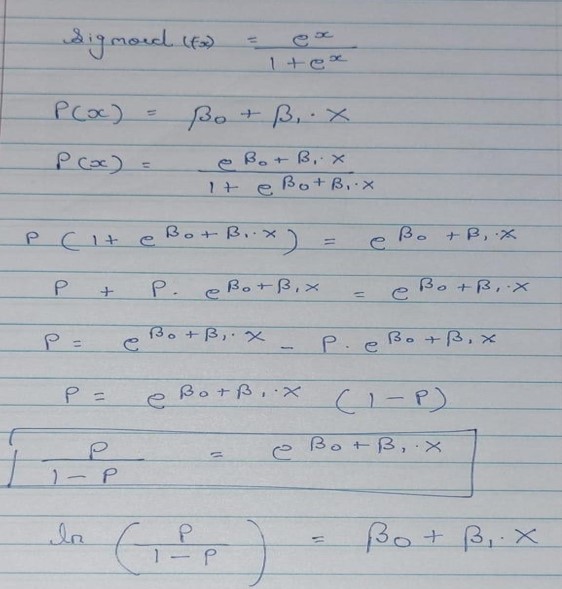 Sigmoid (fx) = e^x / 1 + e^x
P(x) = β₀ + β₁ · X
P(x) = e^(β₀ + β₁ · X) / 1 + e^(β₀ + β₁ · X)
P (1 + e^(β₀ + β₁ · X)) = e^(β₀ + β₁ · X)
P + P · e^(β₀ + β₁ X) = e^(β₀ + β₁ · X)
P = e^(β₀ + β₁ · X) - P · e^(β₀ + β₁ X)
P = e^(β₀ + β₁ · X) (1 - P)
P / 1 - P = e^(β₀ + β₁ · X)
ln (P / 1 - P) = β₀ + β₁ · X